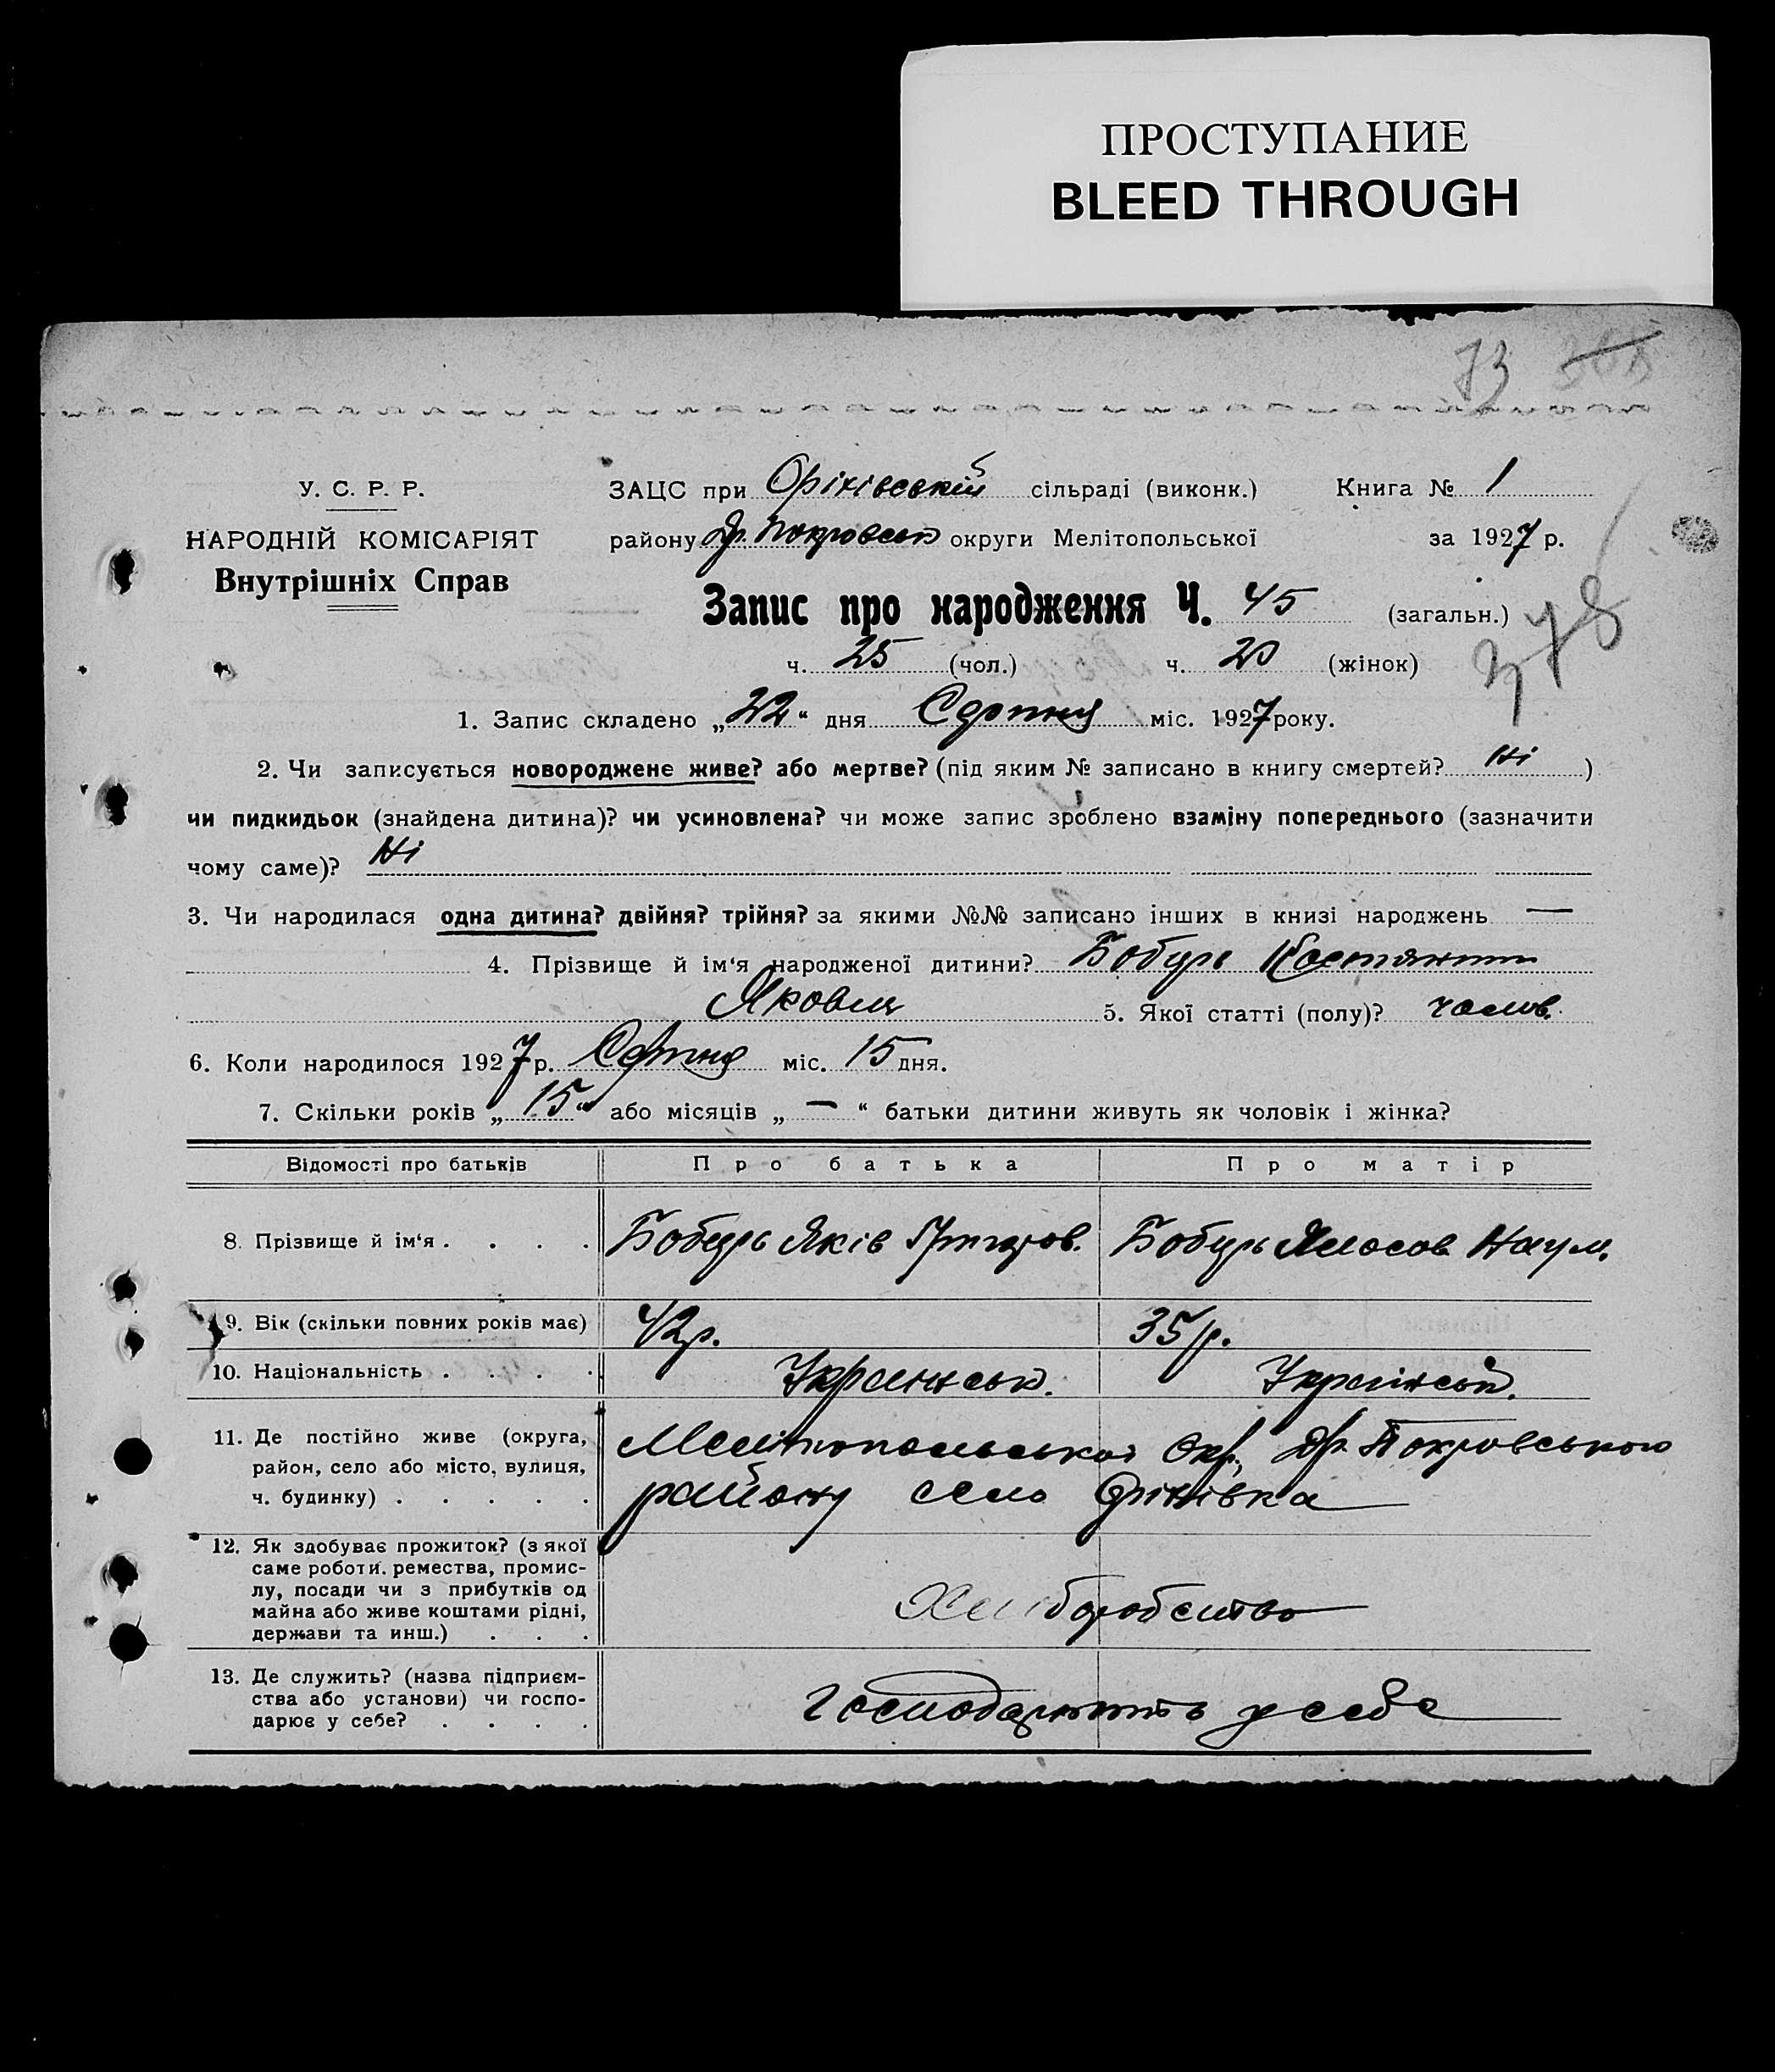 ПРОСТУПАНИЕ
BLEED THROUGH
73
У. С. Р. Р.
НАРОДНІЙ КОМІСАРІЯТ
Внутрішніх Справ
ЗАЦС при Оріхівській сільраді (виконк.) Книга № 1
району Др. Покровськ округи Мелітопольської за 1927 р.
Запис про народження Ч. 45 (загальн.)
378
ч. 25 (чол.) ч. 20 (жінок)
1. Запис складено „22“ дня Серпня міс. 1927 року.
2. Чи записується новороджене живе? або мертве? (під яким № записано в книгу смертей? Ні )
чи пидкидьок (знайдена дитина)? чи усиновлена? чи може запис зроблено взаміну попереднього (зазначити
чому саме)? Ні
3. Чи народилася одна дитина? двійня? трійня? за якими №№ записано інших в книзі народжень —
4. Прізвище й ім‘я народженої дитини? Бобирь Костянтин
Якович 5. Якої статті (полу)? чолов.
6. Коли народилося 1927 р. Серпня міс. 15 дня.
7. Скільки років „ 15 “ або місяців „ — “ батьки дитини живуть як чоловік і жінка?
Відомості про батьків Про батька Про матір
8. Прізвище й ім‘я . . . . Бобирь Яків Григоров. Бобирь Наум.
9. Вік (скільки повних років має) 42р. 35р.
10. Національність . . . . Українськ. Українськ.
11. Де постійно живе (округа,
район, село або місто, вулиця,
ч. будинку) . . . . .
Мелітопольської Окр., Др. Покровського
району село Оріхівка
12. Як здобуває прожиток? (з якої
саме роботи. ремества, промис-
лу, посади чи з прибутків од
майна або живе коштами рідні,
держави та инш.) . . .
Хліборобство
13. Де служить? (назва підприєм-
ства або установи) чи госпо-
дарює у себе? . . . .
Господарюють у себе